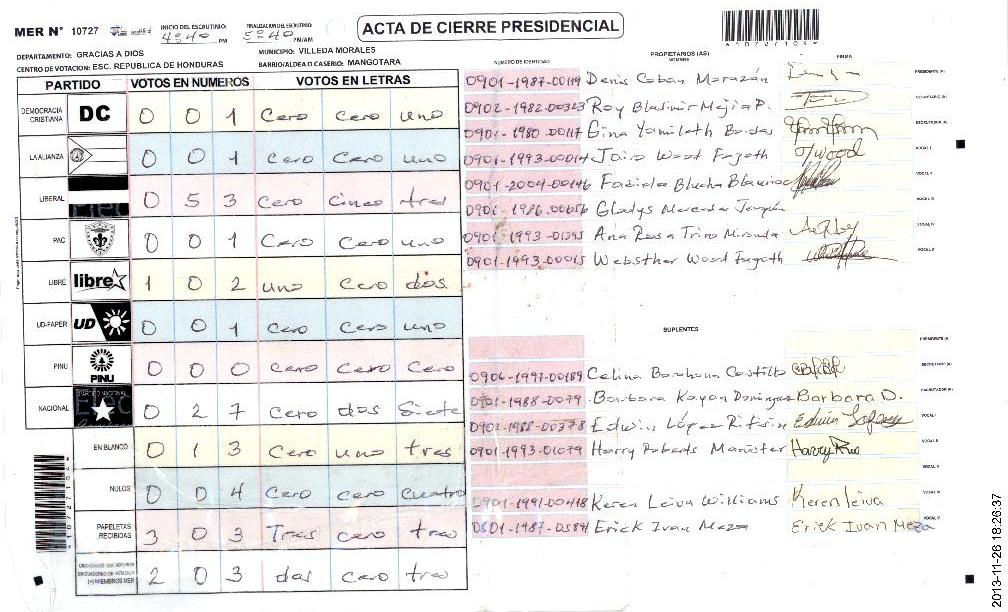 MER N° 10727
INICIO DEL ESCRUTINIO: 4:40 PM
FINALIZACION DEL ESCRUTINIO: 5:40 PM/AM
ACTA DE CIERRE PRESIDENCIAL
DEPARTAMENTO: GRACIAS A DIOS
MUNICIPIO: VILLEDA MORALES
CENTRO DE VOTACION: ESC. REPUBLICA DE HONDURAS
BARRIO/ALDEA O CASERIO: MANGOTARA
PARTIDO VOTOS EN NUMEROS VOTOS EN LETRAS
DEMOCRACIA CRISTIANA DC 0 0 1 Cero Cero uno
LA ALIANZA 0 0 1 Cero Cero uno
LIBERAL 0 5 3 Cero Cinco tres
PAC 0 0 1 Cero Cero uno
LIBRE libre 1 0 2 uno Cero dos
UD-FAPER UD 0 0 1 Cero Cero uno
PINU PINU 0 0 0 Cero Cero Cero
NACIONAL 0 2 7 Cero dos Siete
EN BLANCO 0 1 3 Cero uno tres
NULOS 0 0 4 Cero Cero Cuatro
PAPELETAS RECIBIDAS 3 0 3 Tres Cero tres
(+) MIEMBROS MER 2 0 3 dos Cero tres
PROPIETARIOS (AS)
NUMERO DE IDENTIDAD NOMBRE FIRMA
0901-1987-00119 Denis Coban Morazón PRESIDENTE (A)
0902-1982-00323 Roy Bladimir Mejia P. SECRETARIO (A)
0901-1980-00117 Gina Yamileth ESCRUTADOR (A)
0901-1993-00014 Jairo Wood Fagoth J Wood VOCAL I
0901-2004-00146 Fabiola Blucha VOCAL II
Gladys VOCAL III
0901-1993-01395 Ana Rosa Trino Miranda VOCAL IV
0901-1993-00015 Websther Wood Fagoth VOCAL V
SUPLENTES
PRESIDENTE (A)
0906-1997-00189 Celina Castillo SECRETARIO (A)
0901-1988-0079 Barbara Kayan Barbara D. ESCRUTADOR (A)
0902-1988-00378 Edwin López Edwin VOCAL I
0901-1993-01079 Harry Roberts Harry VOCAL II
VOCAL III
0901-1991-00418 Keren Leiva Williams Keren leiva VOCAL IV
0801-1987-05891 Erick Ivan Meza Erick Ivan Meza VOCAL V
2013-11-26 18:26:37